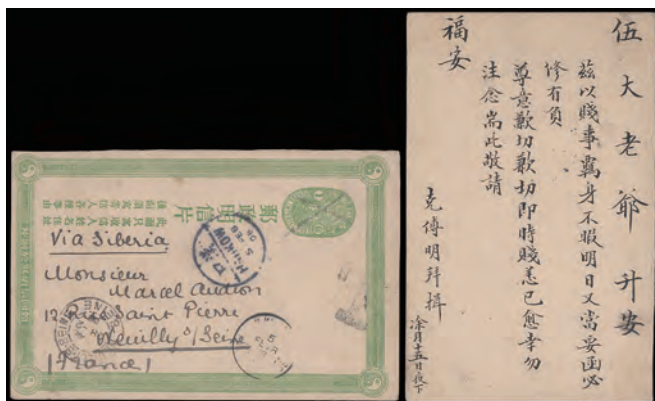 郵政明信片
Via Siberia
Monsieur
Marcel Audion
12 Rue Saint Pierre
Neuilly s/Seine
(France)
HANKOW
伍大老爺升安
茲以賤事羈身不暇明日又當妥函必
修有負
尊意歉切歉切即時賤恙已愈幸勿
注念耑此敬請
福安
克傅明拜揖
涂月十五日夜下